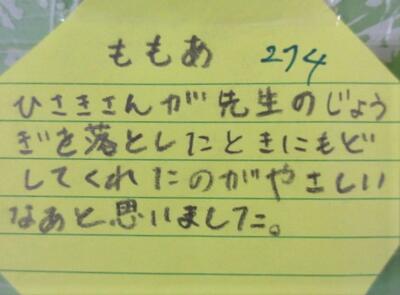 ももあ 274
ひさきさんが先生のじょう
ぎを落としたときにもど
してくれたのがやさしい
なあと思いました。